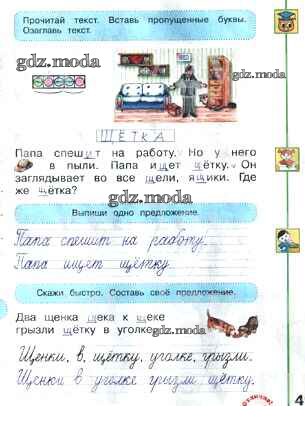 Прочитай текст. Вставь пропущенные буквы.
Озаглавь текст.
gdz.moda
gdz.moda
ЩЁТКА
Папа спешит на работу. Но у него
в пыли. Папа ищет щётку. Он
заглядывает во все щели, ящики. Где
же щётка?
gdz.moda
Выпиши одно предложение.
Папа спешит на работу.
Папа ищет щётку.
Скажи быстро. Составь своё предложение.
Два щенка щека к щеке
грызли щётку в уголке.
gdz.moda
Щенки, в, щётку, уголке, грызли.
Щенки в уголке грызли щётку.
4